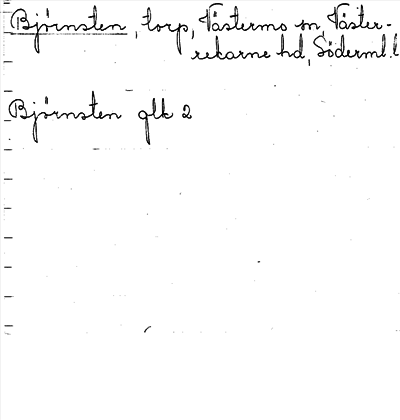 Björnsten, torp, Västermo sn, Väster-
rekarne hd, Söderml. l
Björnsten glk 2